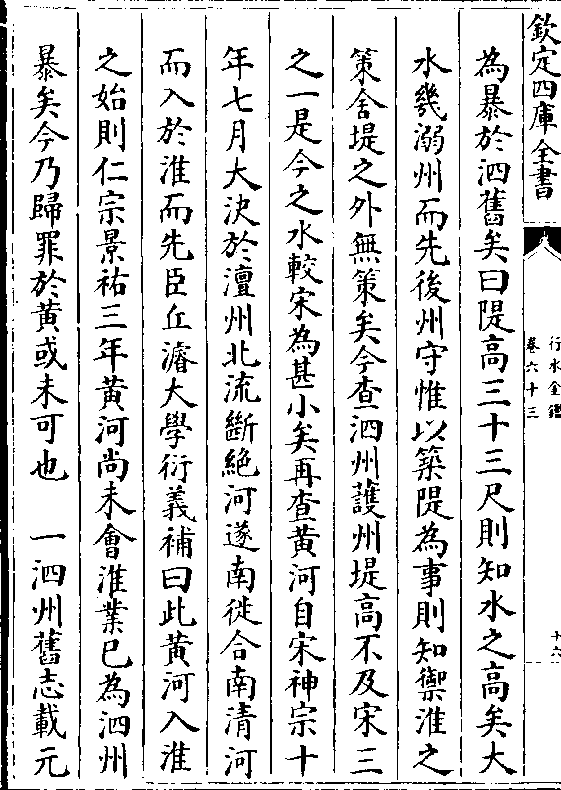 欽定四庫全書
行水金鑑
卷六十三
十六
為暴於泗舊矣曰隄高三十三尺則知水之高矣大
水幾溺州而先後州守惟以築隄為事則知禦淮之
策舍堤之外無策矣今查泗州護州堤高不及宋三
之一是今之水較宋為甚小矣再查黄河自宋神宗十
年七月大決於澶州北流斷絶河遂南徙合南清河
而入於淮而先臣丘濬大學衍義補曰此黄河入淮
之始則仁宗景祐三年黄河尚未會淮業已為泗州
暴矣今乃歸罪於黄或未可也　一泗州舊志載元